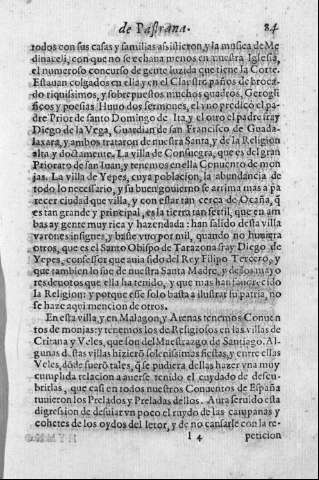 de Pastrana. 84
todos con sus casas y familias assistieron, y la musica de Me
dinaceli, con que no se echaua menos en nuestra Iglesia,
el numeroso concurso de gente luzida que tiene la Corte.
Estauan colgados en ella y en el Claustro paños de broca-
do riquissimos, y sobrepuestos muchos quadros, Gerogli
ficos y poesias Huuo dos sermones, el vno predicò el pa-
dre Prior de santo Domingo de Ita, y el otro el padre fray
Diego de la Vega, Guardian de san Francisco de Guada-
laxara, y ambos trataron de nuestra Santa, y de la Religion
alta y doctamente. La villa de Consuegra, que es del gran
Priorato de san Iuan, y tenemos en ella Conuento de mon
jas. La villa de Yepes, cuya poblacion, la abundancia de
todo lo necessario, y su buen gouierno se arrima mas a pa
recer ciudad que villa, y con estar tan cerca de Ocaña, q̃
es tan grande y principal, es la tierra tan fertil, que en am
bas ay gente muy rica y hazendada: han salido desta villa
varones insignes, y baste vno por mil, quando no huuiera
otros, que es el Santo Obispo de Tarazona fray Diego de
Yepes, confessor que auia sido del Rey Filipo Tercero, y
que tambien lo fue de nuestra Santa Madre, y de los mayo
res deuotos que ella ha tenido, y que mas han fauorecido
la Religion: y porque esse solo basta a ilustrar su patria, no
se haze aqui mencion de otros.
En esta villa, y en Malagon, y Arenas tenemos Conuen
tos de monjas: y tenemos los de Religiosos en las villas de
Critana y Veles, que son del Maestrazgo de Santiago. Al-
gunas destas villas hizierõ solenissimas fiestas, y entre ellas
Veles, dõde fuerõ tales, q̃ se pudiera dellas hazer vna muy
cumplida relacion a auerse tenido el cuydado de descu-
brirlas, que casi en todos nuestros Conuentos de España
tuuieron los Prelados y Preladas dellos. Aura seruido esta
digression de desuiar vn poco el ruydo de las campanas y
cohetes de los oydos del letor, y de no cansarle con la re-
l 4 peticion